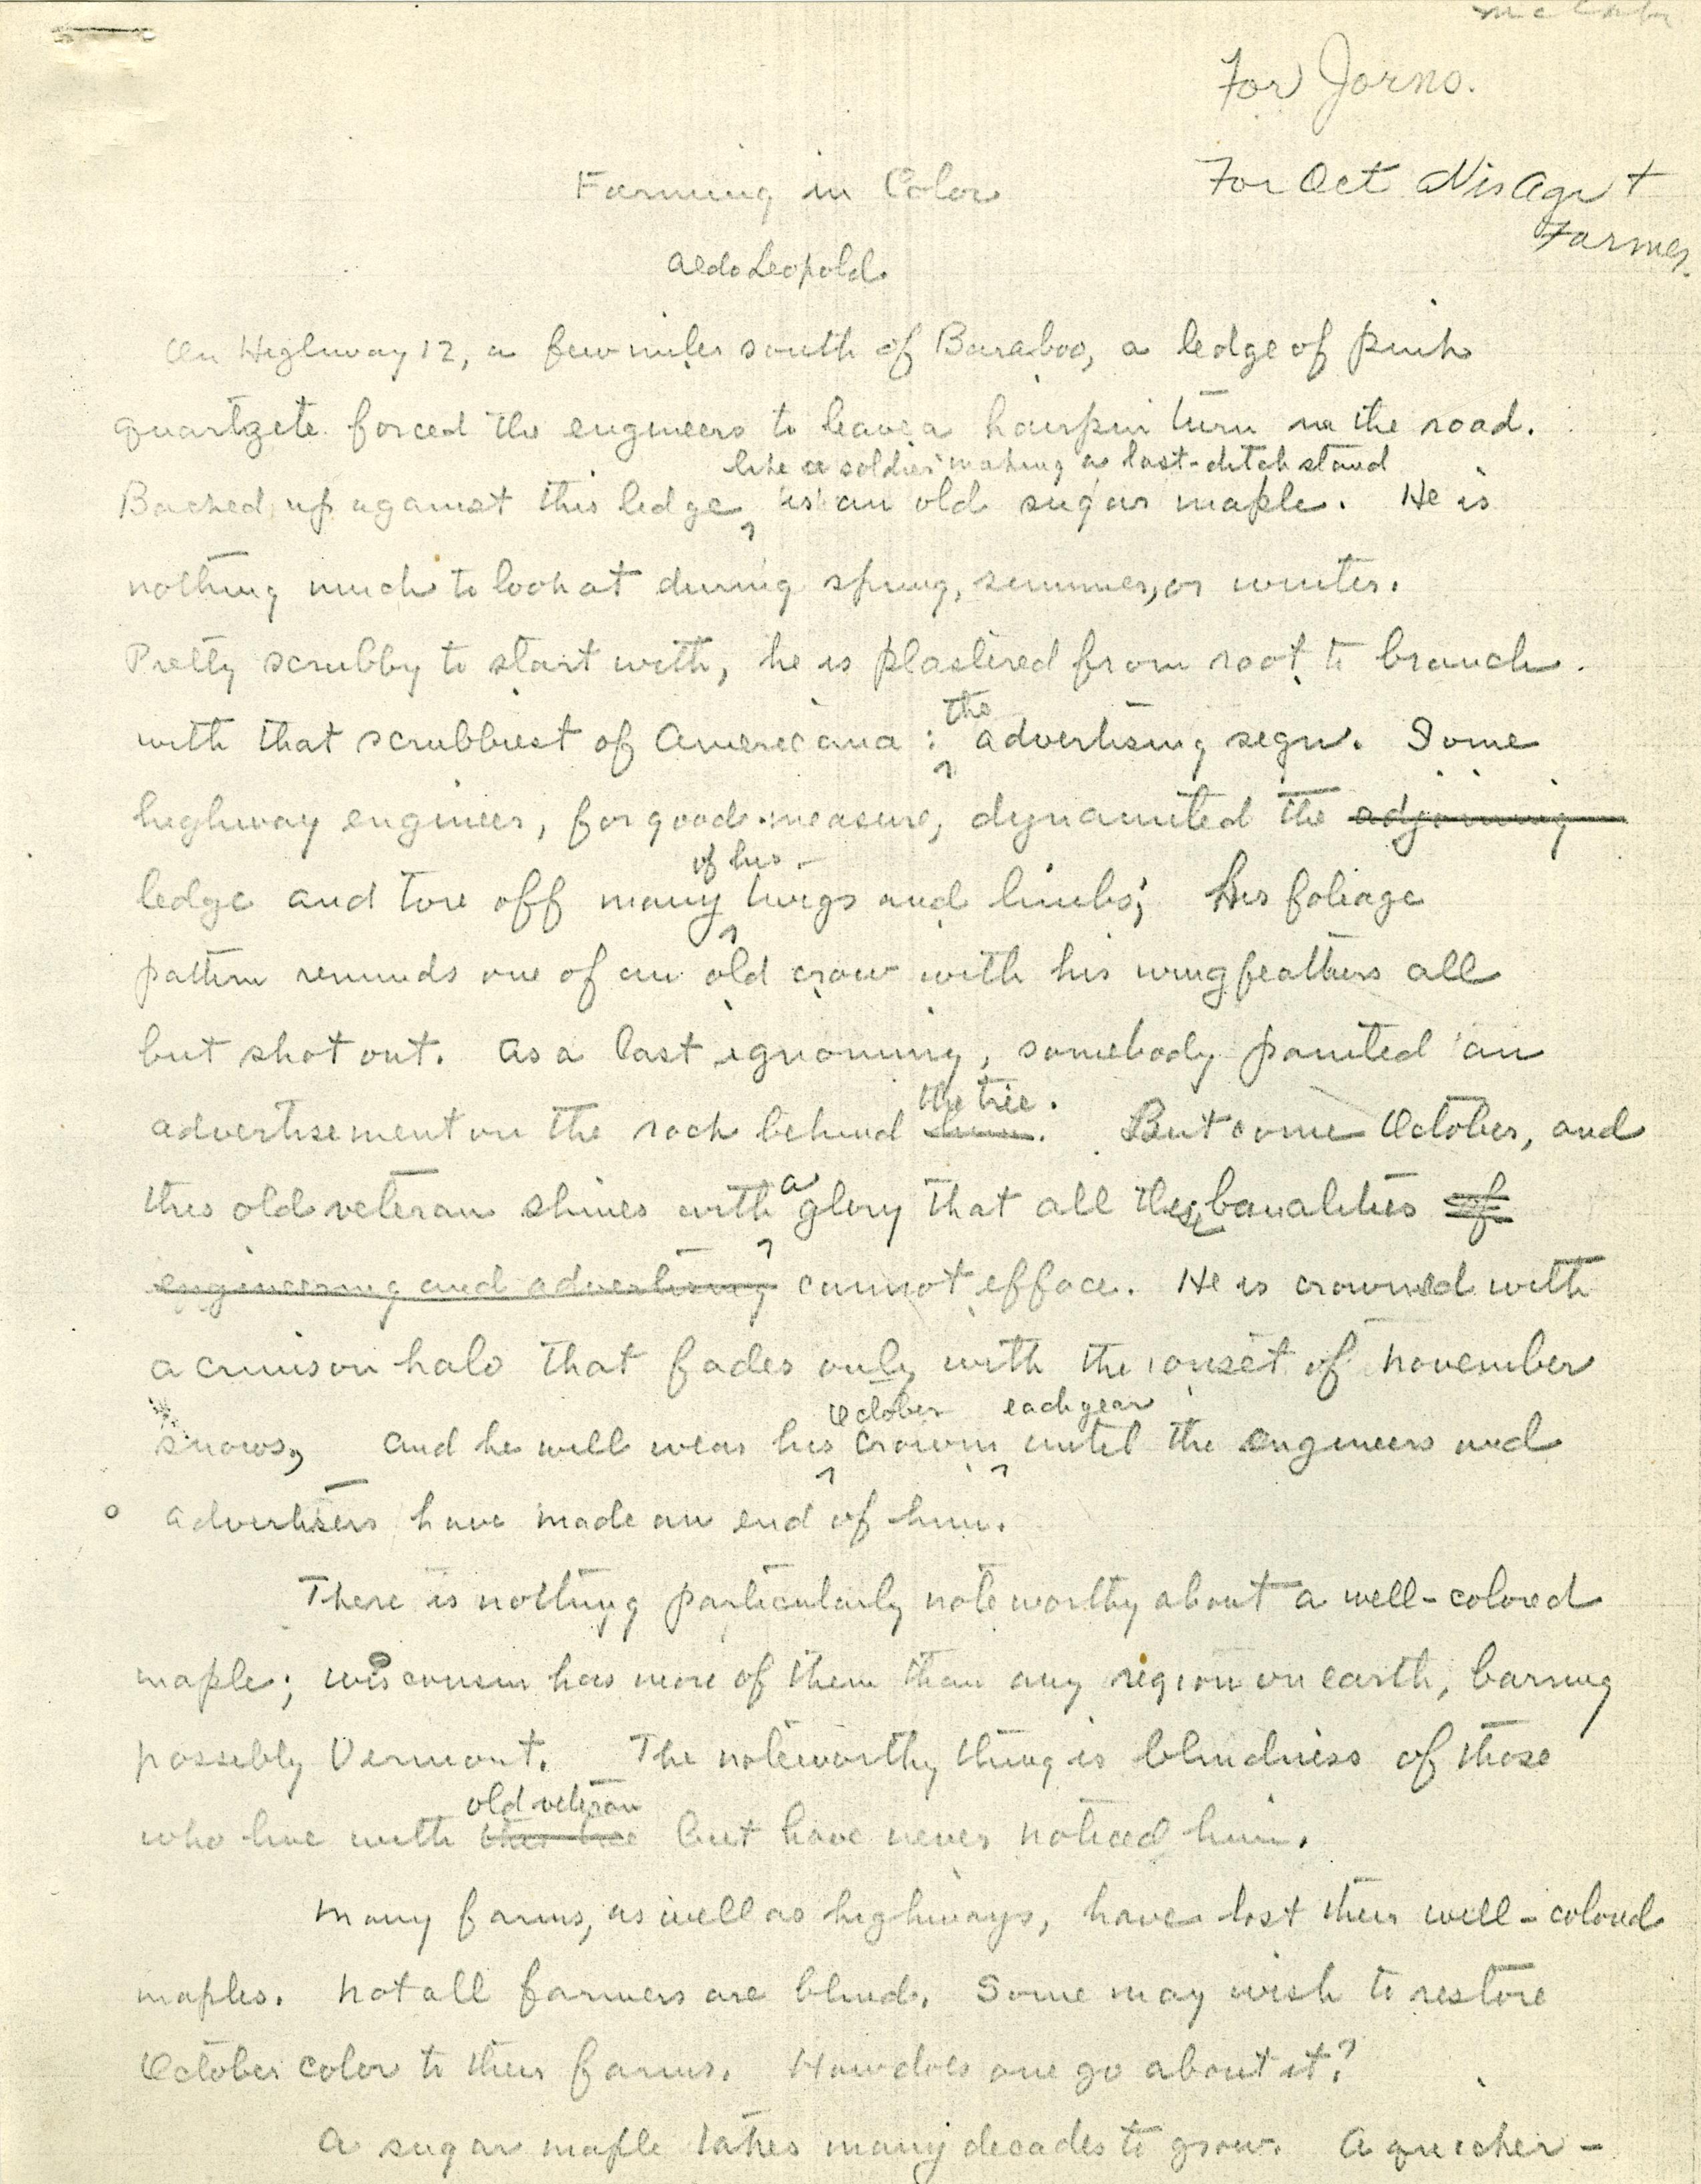 For Jorns.
For Oct Wis Agr &
Farmer.
Farming in Color
Aldo Leopold.
On Highway 12, a few miles south of Baraboo, a ledge of pink
quartzite forced the engineers to leave a hairpin turn in the road.
like a soldier making a last-ditch stand
Backed up against this ledge is an old sugar maple. He is
nothing much to look at during spring, summer, or winter.
Pretty scrubby to start with, he is plastered from root to branch
the
with that scrubbiest of Americana: advertising sign. Some
highway engineer, for good measure, dynamited the adjoining
of his
ledge and tore off many twigs and limbs; his foliage
pattern reminds one of an old crow with his wing feathers all
but shot out. As a last ignominy, somebody painted an
the tree.
advertisement on the rock behind him. But come October, and
a
this old veteran shines with glory that all these banalities of
engineering and advertising cannot efface. He is crowned with
a crimson halo that fades only with the onset of November
October each year
snows, and he will wear his crown until the engineers and
advertisers have made an end of him.
There is nothing particularly noteworthy about a well-colored
maple; Wisconsin has more of them than any region on earth, barring
possibly Vermont. The noteworthy thing is blindness of those
old veteran
who live with this tree but have never noticed him.
Many farms, as well as highways, have lost their well-colored
maples. Not all farmers are blind. Some may wish to restore
October color to their farms. How does one go about it?
A sugar maple takes many decades to grow. A quicker-